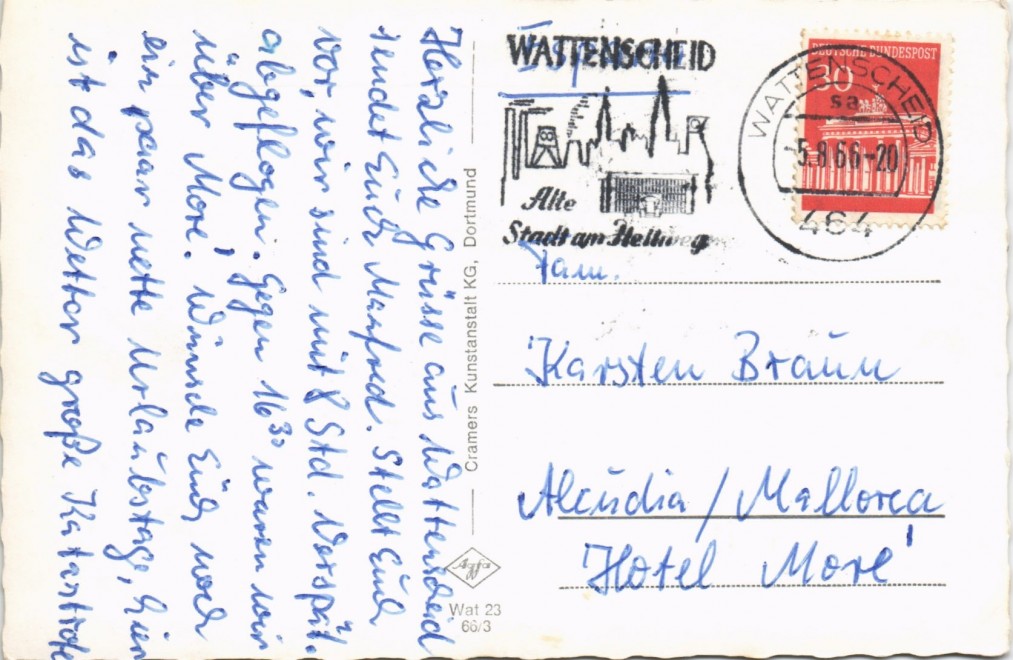 Herzliche Grüsse aus Wattenscheid
sendet Euch Manfred. Stellt Euch
vor, wir sind mit 8 Std. Verspät.
abgeflogen. Gegen 16³⁰ waren wir
über Moré. Wünsche Euch noch
ein paar nette Urlaubstage, hier
ist das Wetter große Katastrofe
Cramers Kunstanstalt KG, Dortmund
Agfa
Wat 23
66/3
WATTENSCHEID
Alte
Stadt am Hellweg
WATTENSCHEID
sa
-5.8.66-20
464
DEUTSCHE BUNDESPOST
30
Fam.
Karsten Braun
Alcudia / Mallorca
Hotel Moré